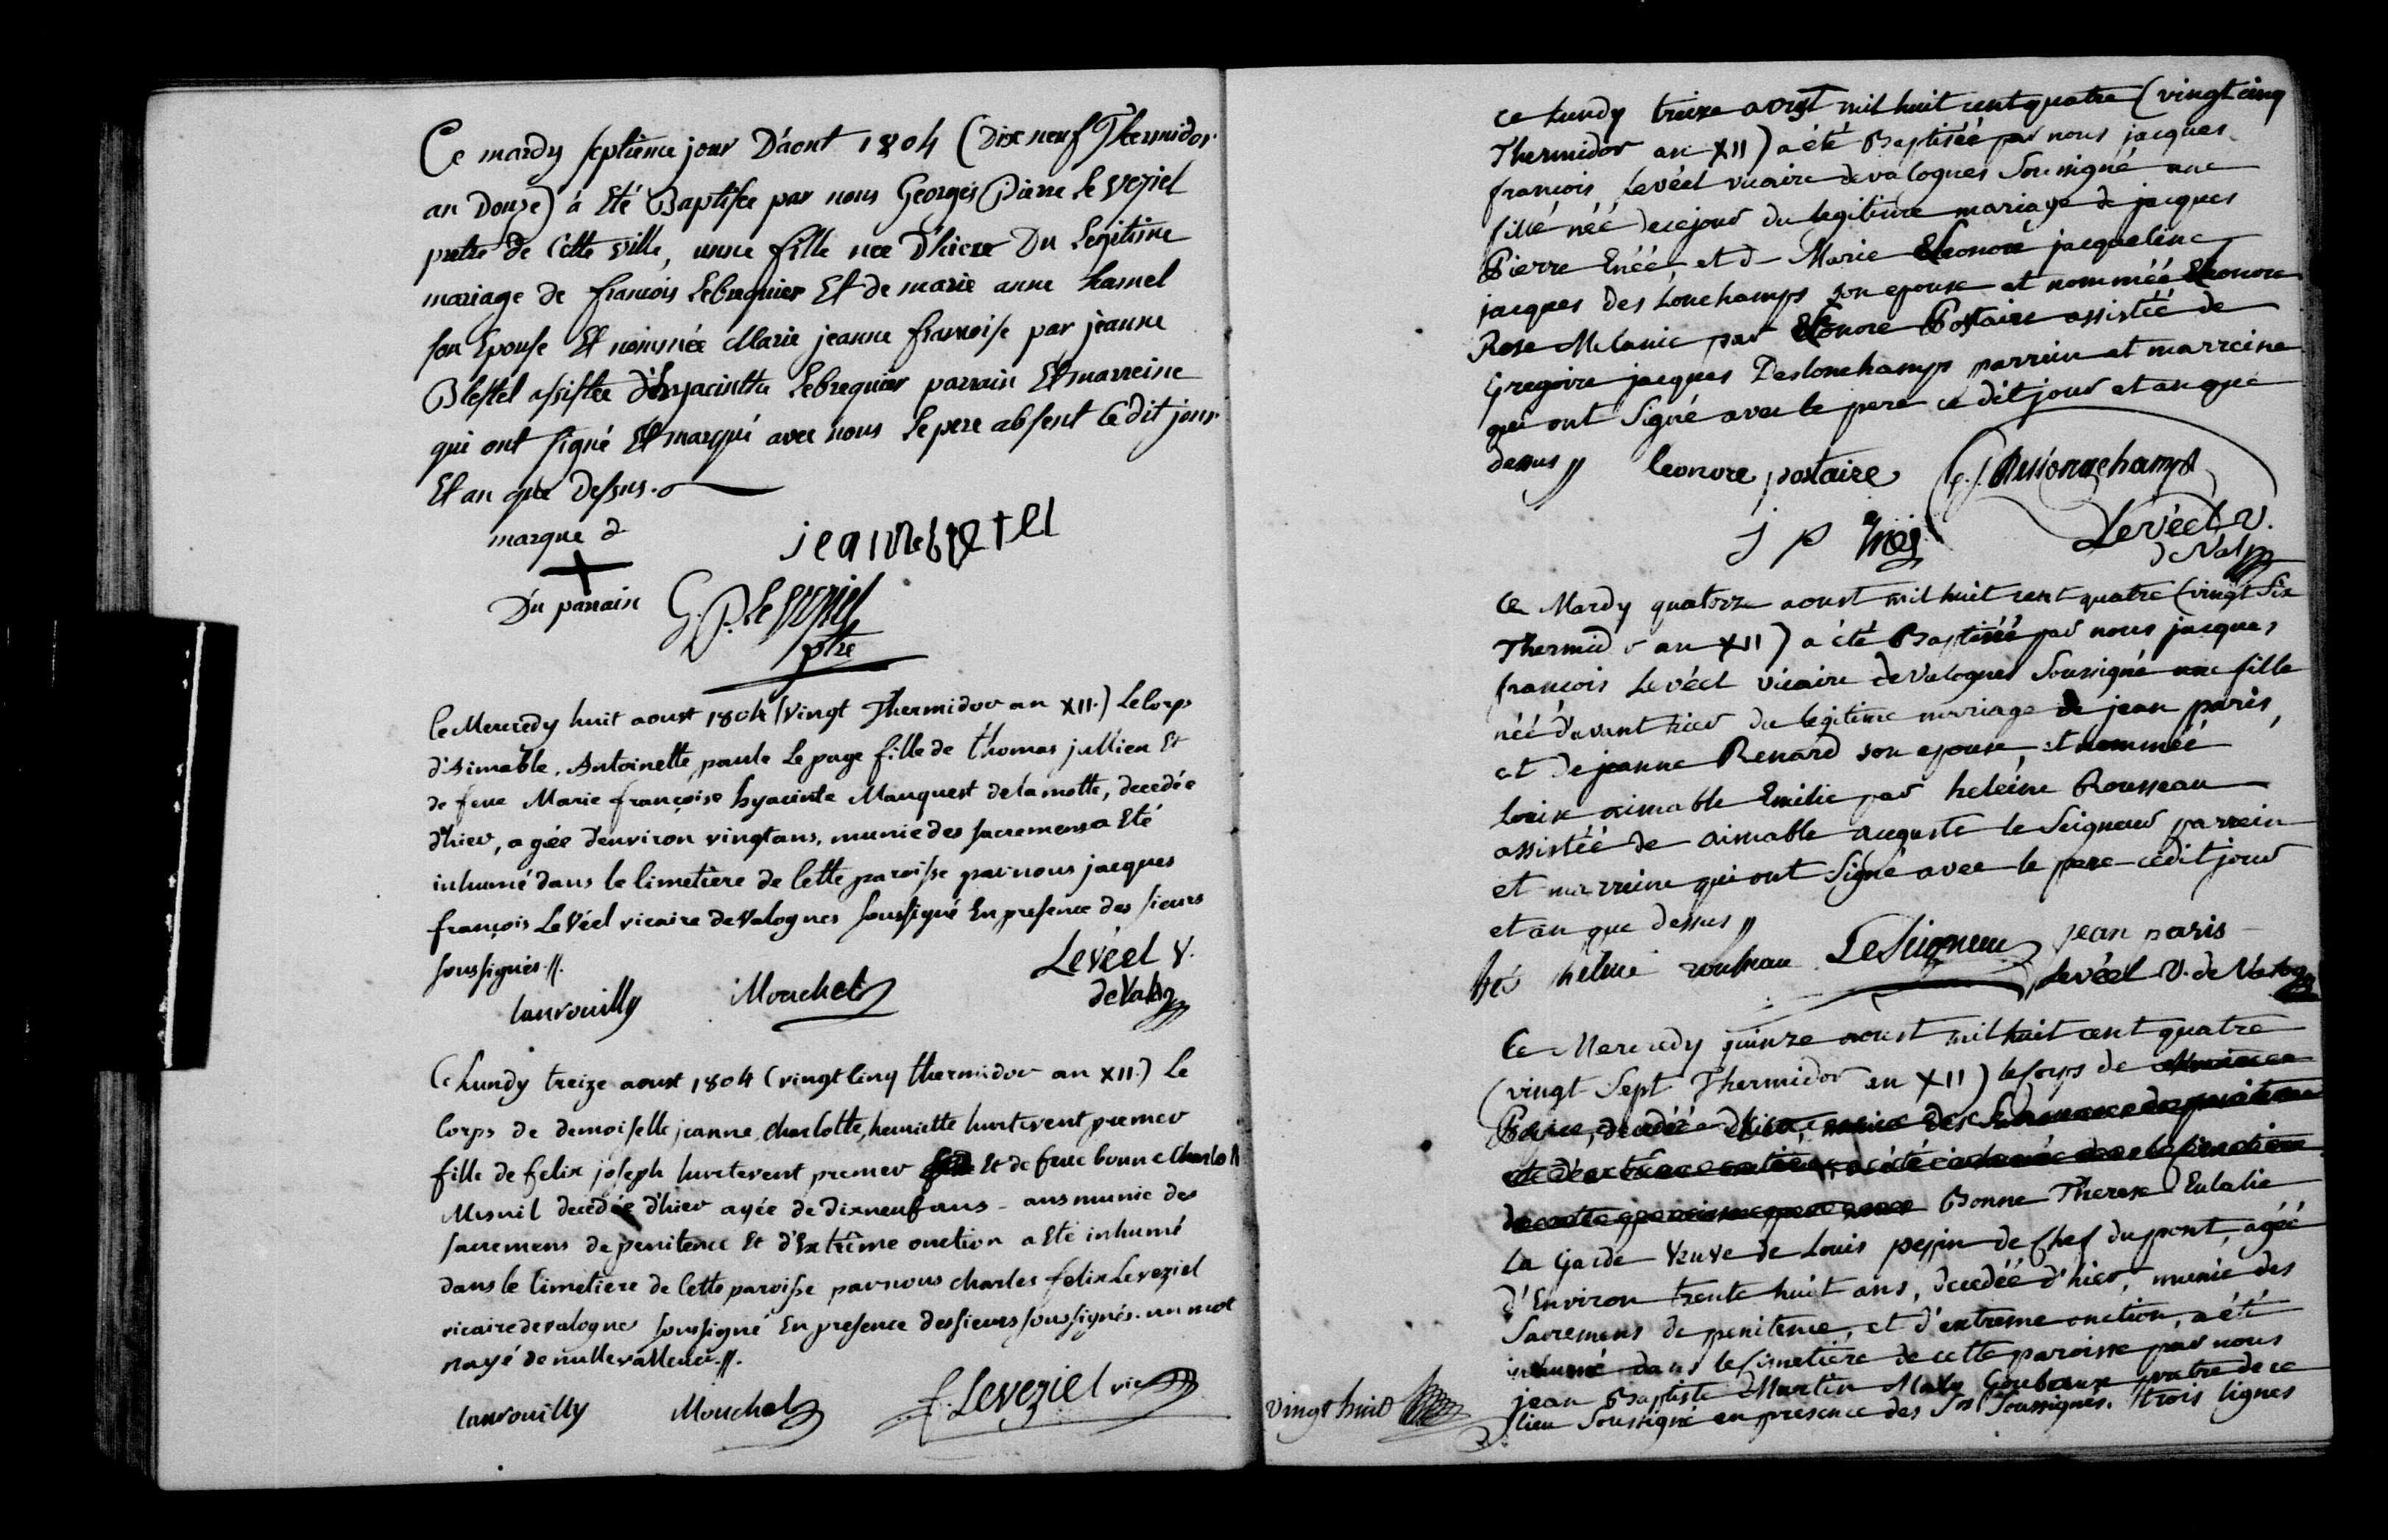 Ce mardy septieme jour D'aout 1804 (Dix neuf Thermidor
an Douze) à Eté Baptisée par nous Georges Pierre Le Veziel
pretre de Cette ville, unne fille nee D'hiere Du Legitime
mariage de francois Lebreguier Et de marie anne hamel
son Epouse Et nommée Marie jeanne francoise par jeanne
Blestel assistée d'hyacinthe Lebreguier parrain Et marreine
qui ont signé Et marqué avec nous Le pere absent Cédit jour
Et an que Dessus.
marque d
Du parrain
jeanne blestel
G. P. Le Veziel
ptre
Ce Mercredy huit aoust 1804 (vingt Thermidor an XII.) Le Corps
d'Aimable. Antoinette paule Le page fille de thomas jullien Et
de feue Marie françoise hyacinte Mauquest delamotte, decedée
d'hier, agée d'environ vingt ans, munie des sacremens a Eté
inhumé dans le Cimetiere de Cette paroisse par nous jacques
françois Le Véel vicaire de Valognes soussigné En presence des sieurs
soussignés.//.
Lanrouilly Mouchel Levéel V.
de Valog
Ce Lundy treize aoust 1804 (vingt Cinq thermidor an XII.) Le
Corps de demoiselle jeanne, charlotte, henriette hurtevent premer
fille de felix joseph hurtevent premer Et de feue bonne Charlott
Mesnil decedée d'hier agée de dixneuf ans - ans munie des
sacremens de penitence Et d'Extrême onction a Eté inhumé
dans le Cimetiere de Cette paroisse par nous charles felix Leveziel
vicaire de valognes soussigné En presence des sieurs soussignés. un mot
rayé de nulle valleur.//.
Lanrouilly Mouchel f. Leveziel vic
ce Lundy treize aoust mil huit cent quatre (vingt cinq
Thermidor an XII) a été Baptisée par nous jacques
françois Levéel vicaire de valognes Soussigné une
fille néé de ce jour du legitime mariage de jacques
Pierre Enéé, et d- Marie Eleonore jacqueline
jacques des Lonchamps son epouse et nommée Eleonore
Rose Melanie par Eleonore Postaire assistéé de
Gregoire jacques Deslonchamps parrein et marreine
qui ont Signé avec le pere ce dit jour et an que
dessus //
leonore postaire G. J. Deslongchamps
J P Levéel V.
de Valog
Ce Mardy quatorze aoust mil huit cent quatre (vingt Six
Thermidor an XII) a été Baptiséé par nous jacques
françois Levéel vicaire de Valognes Soussigné une fille
néé d'avant hier du legitime mariage de jean paris,
et de jeanne Renard son epouse, et nommée
Louise aimable Emilie par heleine Rousseau
assistéé de aimable auguste le Seigneur parrein
et marreine qui ont Signé avec le pere cedit jour
et an que dessus //
helene rousseau LeSeigneur jean paris
Levéel V. de Valog
Ce Mercredy quinze aoust mil huit cent quatre
(vingt Sept Thermidor an XII) le corps de
Bonne Therese Eulalie
La Garde Veuve de Louis pessin de Chef du pont, agéé
d'Environ trente huit ans, decedéé d'hier, munie des
Sacremens de penitence, et d'extreme onction, a été
inhumé dans le Cimetiere de cette paroisse par nous
jean Baptiste Martin Goubeaux pretre de ce
lieu Soussigné en presence des Srs Soussignés. trois lignes
vingt huit